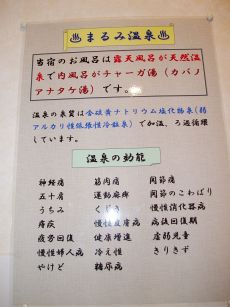 ♨まるみ温泉♨
当宿のお風呂は露天風呂が天然温
泉で内風呂がチャーガ湯（カバノ
アナタケ湯）です。
温泉の泉質は含硫黄ナトリウム塩化物泉(弱
アルカリ性低張性冷鉱泉）で加温、ろ過循環
しています。
温泉の効能
神経痛 筋肉痛 関節痛
五十肩 運動麻痺 関節のこわばり
うちみ くじき 慢性消化器病
痔疾 慢性皮膚病 病後回復期
疲労回復 健康増進 虚弱児童
慢性婦人病 冷え性 きりきず
やけど 糖尿病